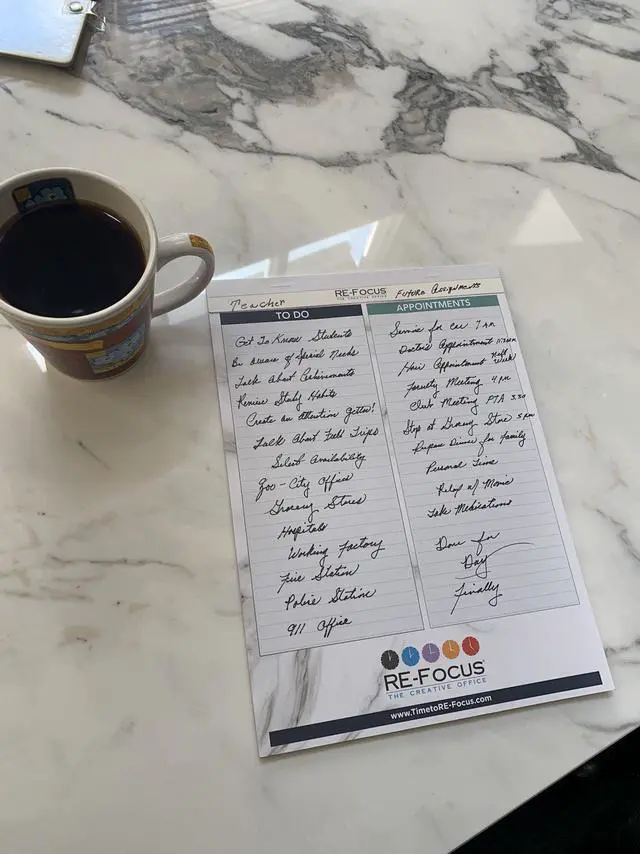 Teacher
RE-FOCUS
THE CREATIVE OFFICE
Future Assignments
TO DO
Get To Know Students
Be aware of Special Needs
Talk About Achievements
Review Study Habits
Create an Attention getter!
Talk About Field Trips
Select Availability
Zoo - City Office
Grocery Stores
Hospitals
Working Factory
Fire Station
Police Station
911 Office
APPOINTMENTS
Service for car 7 AM
Doctors Appointment 11:30AM
Hair Appointment next week
Faculty Meeting 4 PM
Club Meeting PTA 5:30
Stop at Grocery Store 5 pm
Prepare Dinner for Family
Personal Time
Relax w/ Movie
Take Medications
Done for
Day
Finally
RE-FOCUS
THE CREATIVE OFFICE
www.TimetoRE-Focus.com